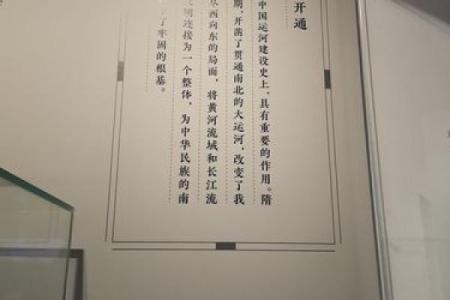 开通
中国运河建设史上，具有重要的作用。隋
期，开凿了贯通南北的大运河，改变了我
西向东的局面，将黄河流域和长江流
连接为一个整体，为中华民族的南
了牢固的根基。